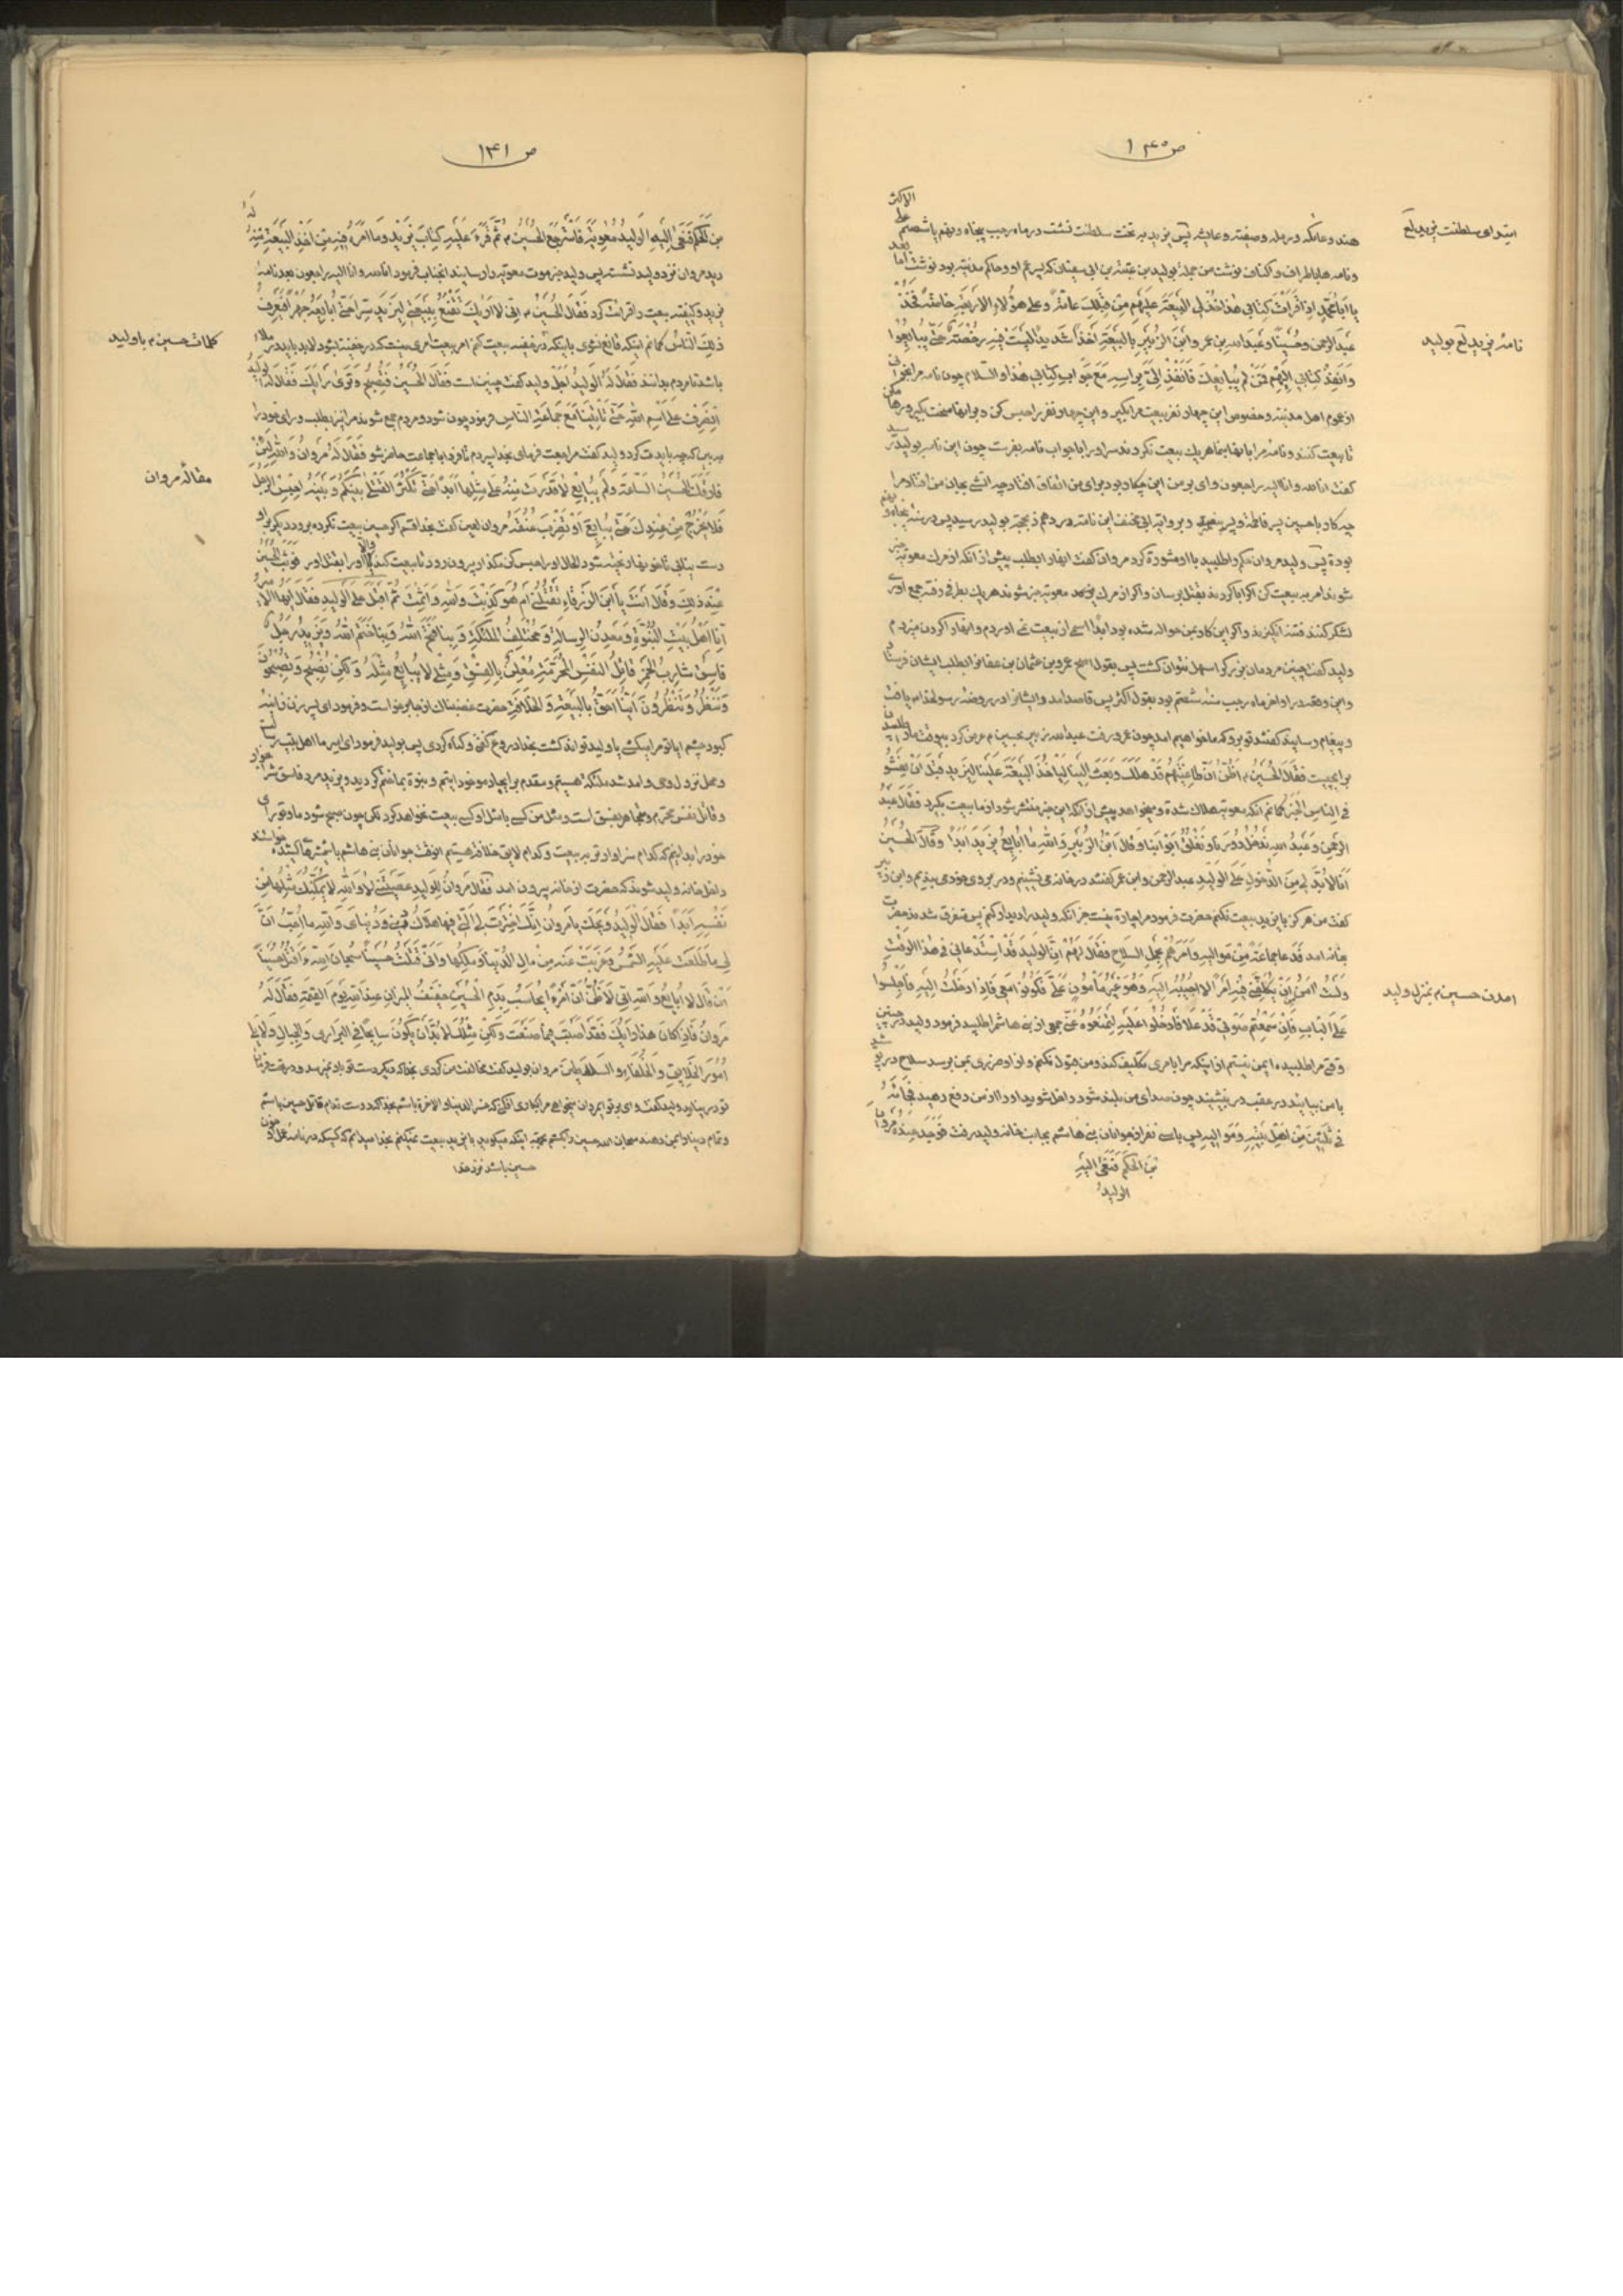 ص ۱۴۰
ابتدای سلطنت یزید لع
هند و عاتکه و رمله و صفیه و عایشه پس یزید بر تخت سلطنت نشست در ماه رجب پنجاه و نهم یا شصتم علی الاکثر
و نامه ها باطراف و اکناف نوشت من جمله بولید بن عتبة بن ابی سفیان که پسر عم او و حاکم مدینه بود نوشت اما بعد
نامهٔ یزید لع بولید
یا ابا محمد اذا قرات کتابی هذا فخذ لی البیعة علیهم من قبلک عامة و علی هؤلاء الاربعة خاصة فخذ
عبد الرحمن و حسینا و عبد الله بن عمر و ابن الزبیر بالبیعة اخذا شدیدا لیست فیه رخصة حتی یبایعوا
وانفذ کتابی الیهم فمن لم یبایعک فانفذ الیّ براسه مع جواب کتابی هذا و السلام چون نامه مرا بخوانی
از عموم اهل مدینه و خصوص این چهار نفر بیعت مرا بگیر و این چهار نفر را حبس کن و بر ایشان سخت بگیر و رها مکن
تا بیعت کنند و نامهٔ مرا بایشان بنما هر یک بیعت نکردند سر او را با جواب نامه بفرست چون این نامه بولید رسید
گفت انا لله و انا الیه راجعون وای بر من این چکار بود برای من اتفاق افتاد چه اتشی بجان من افتاد مرا
چه کار با حسین پسر فاطمه و پسر پیغمبر و بروایة ابی مخنف این نامه در دهم ذیحجه بولید رسید پس در سنه پنجاه و نهم
بوده پس ولید مروان حکم را طلبید با او مشورة کرد مروان گفت انها را بطلب پیش از انکه از مرگ معویه خبر
شوند امر به بیعت کن اگر ابا کردند بقتل برسان و اگر از مرگ معویه خبر شوند هر یک بطرفی رفته جمع اوری
لشکر کنند فتنه انگیزند و اگر این کار بمن حواله شده بود ابدا اسمی از بیعت نمی اوردم و انها را گردن میزدم
ولید گفت چنین مردمان بزرگ را سهل نتوان کشت پس بقول اصح عمرو بن عثمان بن عفان را بطلب ایشان فرستاد
و این وقعه در اواخر ماه رجب سنه شصتم بود بقول اکثر پس قاصد امد و ایشان را در روضه رسولخدا یافت
و پیغام رسانید گفتند تو برو که ما خواهیم امد چون عمرو رفت عبد الله زبیر بحسین م عرض کرد بیوقت ما را طلبیدن
برای چیست فقال الحسین م اظن ان طاغیتهم قد هلک و بعث الینا لیأخذ البیعة علینا لیزید قبل ان یفشو
فی الناس الخبر گمانم انکه معویه هلاک شده و میخواهد پیش از انکه این خبر منتشر شود از ما بیعت بگیرد فقال عبد
الرحمن و عبد الله ندخل دورنا و نغلق ابوابنا و قال ابن الزبیر و الله ما ابایع یزید ابدا و قال الحسین
انا لا بد لی من الدخول علی الولید عبد الرحمن و ابن عمر گفتند در خانه می نشینیم و در بروی خود می بندیم و ابن زبیر
گفت من هرگز با یزید بیعت نکنم حضرت فرمود مرا چارة نیست جز انکه ولید را دیدار کنم پس متفرق شدند حضرت
بخانه امد فدعا جماعة من موالیه و امرهم بحمل السلاح فقال لهم ان الولید قد استدعانی فی هذا الوقت
امدن حسین م بمنزل ولید
ولست امن ان یکلفنی فیه امرا لا اجیبه الیه و هو غیر مأمون علی فکونوا معی فاذا دخلت الیه فاجلسوا
علی الباب فان سمعتم صوتی قد علا فادخلوا علیه لتمنعوه عنی جمعی از بنی هاشم را طلبید فرمود ولید در چنین
وقتی مرا طلبیده ایمن نیستم از اینکه مرا بامری تکلیف کند و من قبول نکنم و از او ضرری بمن برسد سلاح در بر
با من بیایید در عقب در بنشینید چون صدای من بلند شود داخل شوید او را از من دفع دهید فجائه
فی ثلثین من اهل بیته و موالیه پس با سی نفر از جوانان بنی هاشم بجانب خانه ولید رفت فوجد عنده مروان
بن الحکم فنعی الیه
الولید
ص ۱۴۱
بن الحکم فنعی الیه الولید معویة فاسترجع الحسین م ثم قرء علیه کتاب یزید و ما امره فیه من اخذ البیعة منه له
دید مروان نزد ولید نشسته پس ولید خبر موت معویه را رسانید انجناب فرمود انا لله و انا الیه راجعون بعد نامهٔ
یزید و کیفیت بیعت را قرائت کرد فقال الحسین م انی لا اریک تقنع ببیعتی لیزید سرا حتی ابایعه جهرا فیعرف
کلمات حسین م با ولید
ذلک الناس گمانم اینکه قانع نشوی باینکه در خفیه بیعت کنم امر بیعت امری نیست که در خفیة بشود لابد باید در ملاء
باشد تا مردم بدانند فقال له الولید اجل ولید گفت چنین است فقال الحسین فنصبح و تری رایک فقال له الولید
انصرف علی اسم الله حتی تاتینا مع جماعة الناس فرمود چون شود و مردم جمع شوند مرا نیز بطلب و رای خود را
ببین که چه باید کرد ولید گفت مراجعت فرمای بخدا سپردم تا فردا با جماعت حاضر شو فقال له مروان و الله لئن
مقالهٔ مروان
فارقک الحسین الساعة و لم یبایع لا قدرت منه علی مثلها ابدا حتی تکثر القتلی بینکم و بینه احبس الرجل
فلا یخرج من عندک حتی یبایع او تضرب عنقه مروان لعین گفت بخدا قسم اگر حسین بیعت نکرده برود دیگر بر او
دست نیابی تا خونها ریخته شود الحال او را حبس کن مگذار بیرون رود تا بیعت کند والا او را بقتل اور فوثب الحسین
عند ذلک و قال انت یا ابن الزرقاء تقتلنی ام هو کذبت و الله و اثمت ثم اقبل علی الولید فقال ایها الامیر
انا اهل بیت النبوة و معدن الرسالة و مختلف الملئکة و بنا فتح الله و بنا ختم الله و یزید رجل
فاسق شارب الخمر قاتل النفس المحرمة معلن بالفسق و مثلی لا یبایع مثله و لکن نصبح و تصبحون
و ننظر و تنظرون اینا احق بالبیعة و الخلافة حضرت غضبناک از جا برخواست و فرمود ای پسر زن زانیه
کبود چشم ایا تو مرا میکشی یا ولید تواند کشت بخدا دروغ گفتی و گناه کردی پس بولید فرمود ای امیر ما اهل بیت رسالت
و محل نزول وحی و امد شد ملئکه هستیم و مقدم بر ایجاد موجود اتیم و نبوة بما ختم گردید و یزید مرد فاسق شرابخوار
و قاتل نفس محترم و متجاهر بفسق است و مثل من کسی با مثل او کسی بیعت نخواهد کرد لکن چون صبح شود ما و تو رای
خود را بدانیم که کدام سزاوارتر به بیعت و کدام لایق خلافة هستیم انوقت جوانان بنی هاشم با شمشیرهای کشیده خواستند
داخل خانه ولید شوند که حضرت از خانه بیرون امد فقال مروان للولید عصیتنی لا و الله لا یمکنک مثلها من
نفسه ابدا فقال الولید ویحک یا مروان انک اخترت لی التی فیها هلاک دینی و دنیای و الله ما احب ان
لی ما طلعت علیه الشمس و غربت عنه من مال الدنیا و ملکها و انی قتلت حسینا سبحان الله ء اقتل حسینا
ان قال لا ابایع و الله انی لا ظن ان امرء یحاسب بدم الحسین خفیف المیزان عند الله یوم القیمة فقال له
مروان فاذا کان هذا رایک فقد اصبت فیما صنعت و لکن مثلک لا بد ان یکون سایحا فی البراری و الجبال و لا یلی
امور الخلایق و الخلفاء و السلاطین مروان بولید گفت مخالفت من کردی بخدا که دیگر دست تو باو نمیرسد
تو در بیابان ولید گفت وای بر تو ایمروان میخواهی مرا بکاری افکنی که خسر الدنیا و الاخرة باشم بخدا که دوست ندارم قاتل حسین باشم
و تمام دنیا را بمن دهند سبحان الله حسین را بکشم بجهة اینکه میگوید با یزید بیعت نمیکنم بخدا میدانم که کسیکه در نامهٔ عمل او خون
حسین باشد نزد خدا